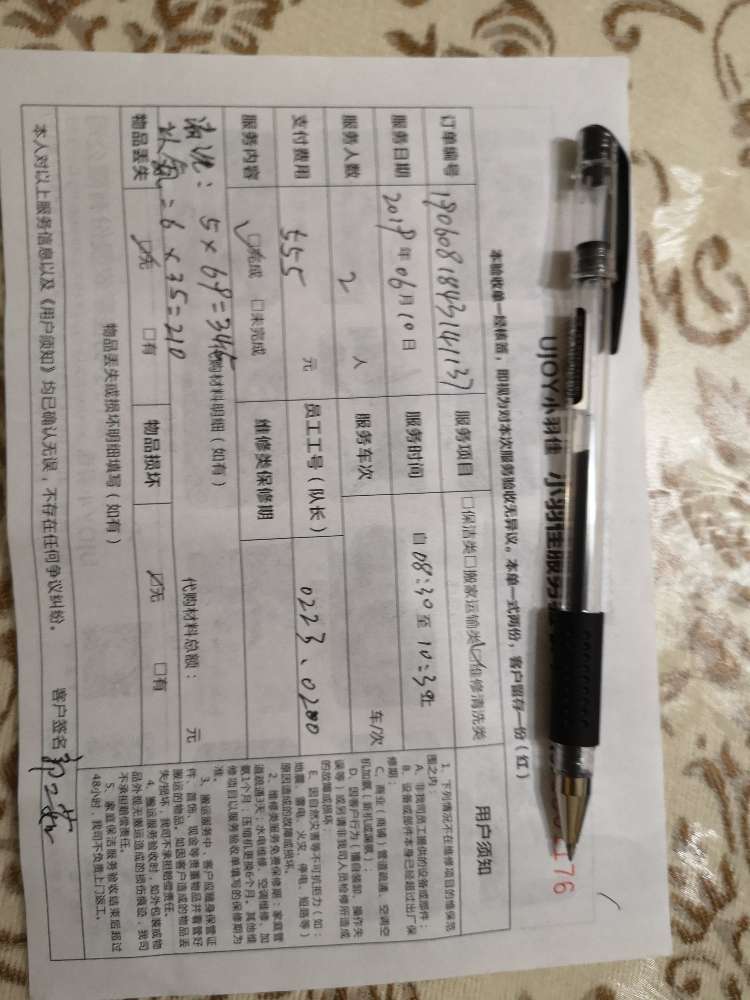 UJOY小羽佳 小羽佳服务
176
本验收单一经核签，即视为对本次服务验收无异议。本单一式两份，客户留存一份（红）
订单编号 1906081843141137 服务项目 □保洁类□搬家运输类☑维修清洗类
服务日期 2019年06月10日 服务时间 自08:30至10:30止
服务人数 2 人 服务车次 车/次
支付费用 555 元 员工工号（队长） 0223、0200
服务内容 ☑完成 □未完成 维修类保修期
代购材料明细（如有） 代购材料总额： 元
清洗：5×69=345
以氟=6×35=210
物品丢失 ☑无 □有 物品损坏 ☑无 □有
物品丢失或损坏明细填写（如有）
本人对以上服务信息以及《用户须知》均已确认无误，不存在任何争议纠纷。 客户签名
用户须知
1、下列情况不在维修项目的维保范
围之内：
A、非我司员工提供的设备或部件；
B、设备或部件本身已经超过出厂保
修期；
C、商业（商铺）管道疏通、空调空
机加氟（新机或漏氟）；
D、因客户行为（擅自装卸、操作失
误等）或另请非我司人员检修所造成
的故障或损坏；
E、因自然灾害等不可抗拒力（如：
地震、雷电、火灾、停电、短路等）
原因造成的故障或损坏。
2、维修类服务免费保修期：家庭管
道疏通3天；水电维修、空调维修、加
氟1个月；压缩机更换6个月，其他维
修项目以服务验收单填写的保修期为
准。
3、搬运服务中，客户应随身保管证
件、首饰、现金等贵重物品并看管好
搬运的物品。如因客户造成的物品丢
失/损坏，我司不承担赔偿责任。
4、搬运服务验收时，如外包装或物
品外观无搬运造成的损伤痕迹，我司
不承担赔偿责任。
5、家庭保洁服务验收结束后超过
48小时，我司不负责上门返工。